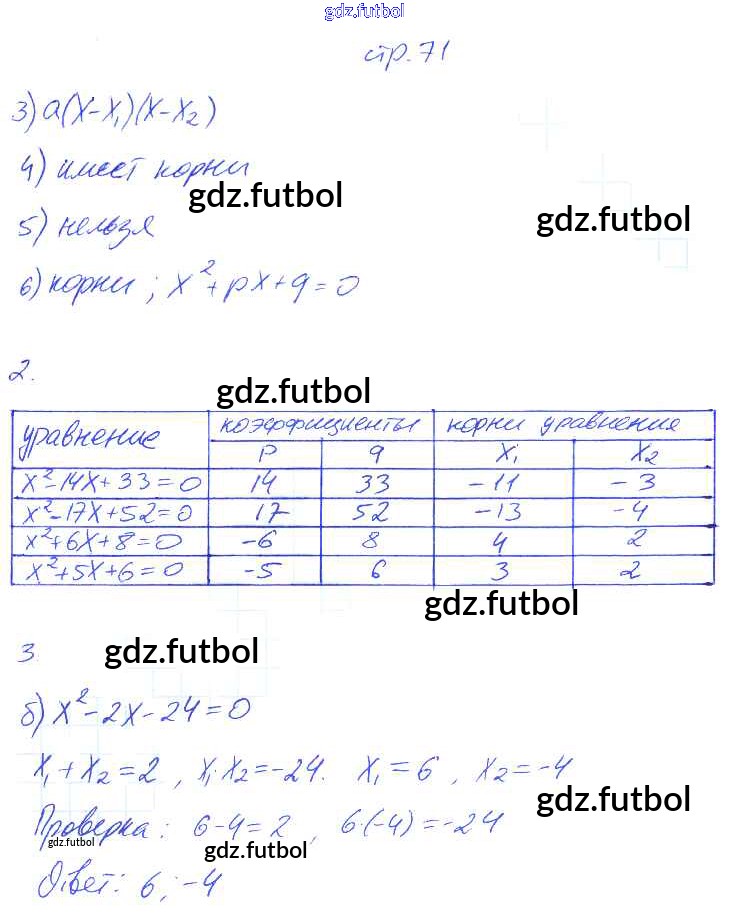 gdz.futbol
стр. 71
3) a(x-x₁)(x-x₂)
4) имеет корни
gdz.futbol
gdz.futbol
5) нельзя
6) корни ; x²+px+q=0
2.
gdz.futbol
уравнение | коэффициенты | корни уравнение
p | q | x₁ | x₂
x²-14x+33=0 | 14 | 33 | -11 | -3
x²-17x+52=0 | 17 | 52 | -13 | -4
x²+6x+8=0 | -6 | 8 | 4 | 2
x²+5x+6=0 | -5 | 6 | 3 | 2
gdz.futbol
3.
gdz.futbol
б) x²-2x-24=0
x₁+x₂=2, x₁·x₂=-24. x₁=6, x₂=-4
gdz.futbol
Проверка: 6-4=2, 6·(-4)=-24
gdz.futbol
gdz.futbol
Ответ: 6; -4